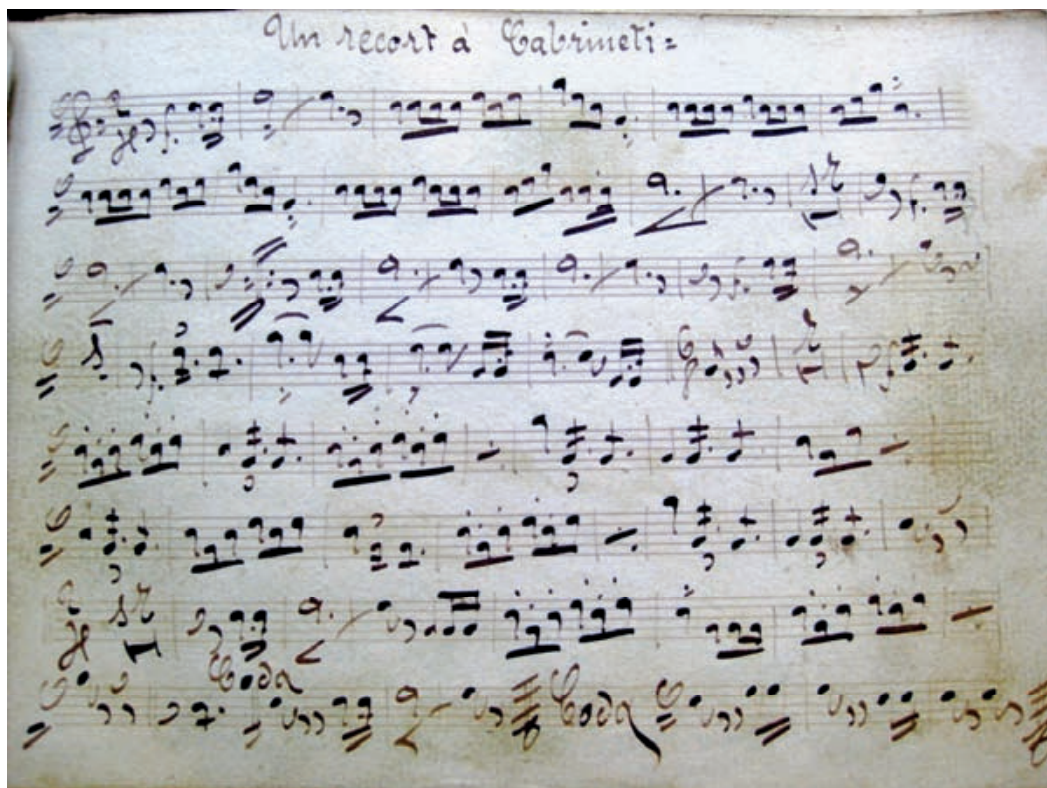 Un recort à Cabrineti =
Coda
Coda